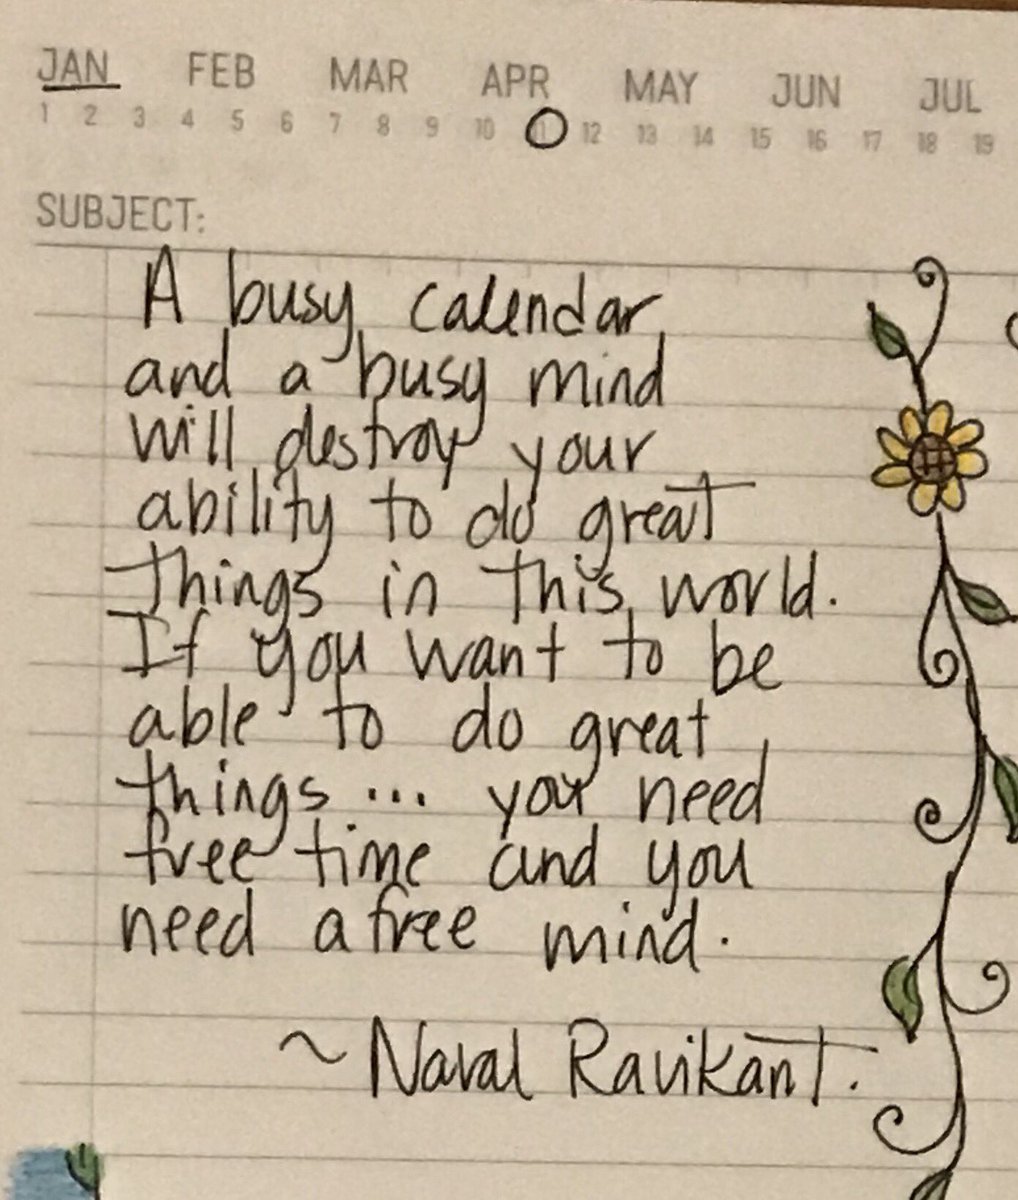 JAN FEB MAR APR MAY JUN JUL
1 2 3 4 5 6 7 8 9 10 11 12 13 14 15 16 17 18 19
SUBJECT:
A busy calendar
and a busy mind
will destroy your
ability to do great
things in this world.
If you want to be
able to do great
things... you need
free time and you
need a free mind.
~ Naval Ravikant.